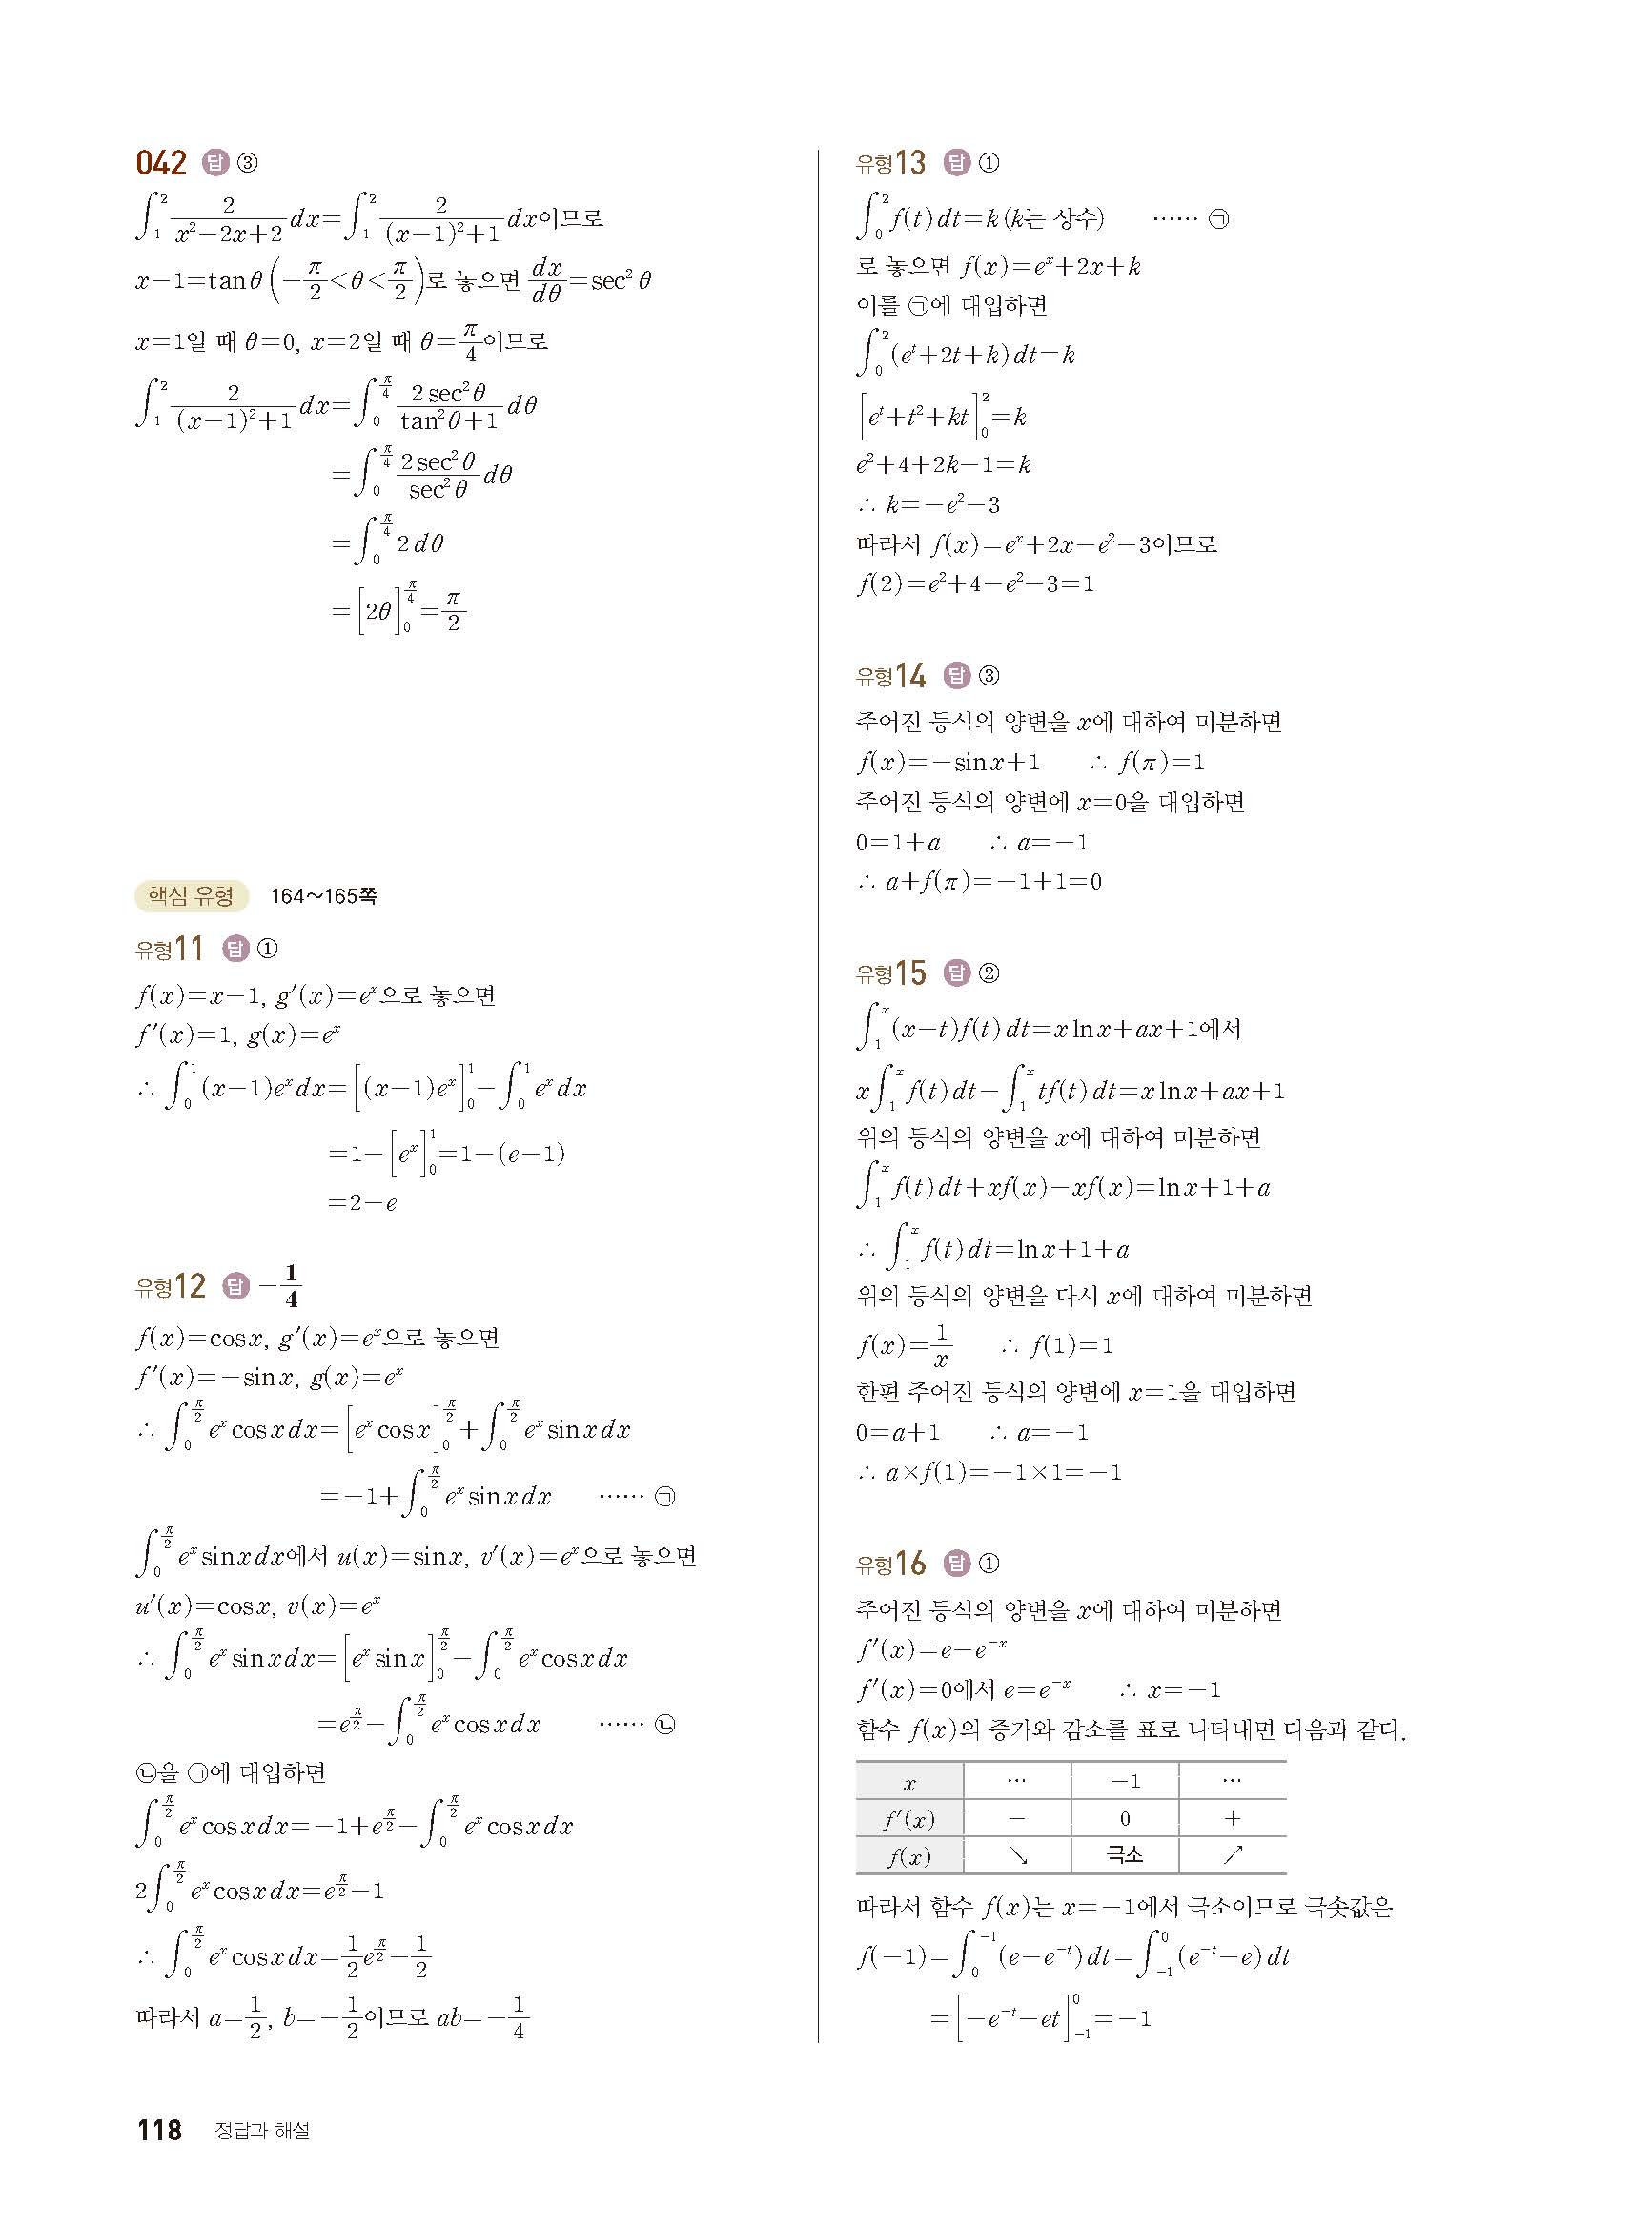 042 답 ③
∫₁² 2/(x²−2x+2) dx=∫₁² 2/((x−1)²+1) dx이므로
x−1=tanθ(−π/2<θ<π/2)로 놓으면 dx/dθ=sec²θ
x=1일 때 θ=0, x=2일 때 θ=π/4이므로
∫₁² 2/((x−1)²+1) dx=∫₀^(π/4) 2sec²θ/(tan²θ+1) dθ
=∫₀^(π/4) 2sec²θ/sec²θ dθ
=∫₀^(π/4) 2dθ
=[2θ]₀^(π/4)=π/2
핵심 유형 164~165쪽
유형11 답 ①
f(x)=x−1, g′(x)=eˣ으로 놓으면
f′(x)=1, g(x)=eˣ
∴ ∫₀¹(x−1)eˣdx=[(x−1)eˣ]₀¹−∫₀¹eˣdx
=1−[eˣ]₀¹=1−(e−1)
=2−e
유형12 답 −1/4
f(x)=cosx, g′(x)=eˣ으로 놓으면
f′(x)=−sinx, g(x)=eˣ
∴ ∫₀^(π/2) eˣcosxdx=[eˣcosx]₀^(π/2)+∫₀^(π/2) eˣsinxdx
=−1+∫₀^(π/2) eˣsinxdx …… ㉠
∫₀^(π/2) eˣsinxdx에서 u(x)=sinx, v′(x)=eˣ으로 놓으면
u′(x)=cosx, v(x)=eˣ
∴ ∫₀^(π/2) eˣsinxdx=[eˣsinx]₀^(π/2)−∫₀^(π/2) eˣcosxdx
=e^(π/2)−∫₀^(π/2) eˣcosxdx …… ㉡
㉡을 ㉠에 대입하면
∫₀^(π/2) eˣcosxdx=−1+e^(π/2)−∫₀^(π/2) eˣcosxdx
2∫₀^(π/2) eˣcosxdx=e^(π/2)−1
∴ ∫₀^(π/2) eˣcosxdx=1/2e^(π/2)−1/2
따라서 a=1/2, b=−1/2이므로 ab=−1/4
유형13 답 ①
∫₀²f(t)dt=k(k는 상수) …… ㉠
로 놓으면 f(x)=eˣ+2x+k
이를 ㉠에 대입하면
∫₀²(eᵗ+2t+k)dt=k
[eᵗ+t²+kt]₀²=k
e²+4+2k−1=k
∴ k=−e²−3
따라서 f(x)=eˣ+2x−e²−3이므로
f(2)=e²+4−e²−3=1
유형14 답 ③
주어진 등식의 양변을 x에 대하여 미분하면
f(x)=−sinx+1 ∴ f(π)=1
주어진 등식의 양변에 x=0을 대입하면
0=1+a ∴ a=−1
∴ a+f(π)=−1+1=0
유형15 답 ②
∫₁ˣ(x−t)f(t)dt=xlnx+ax+1에서
x∫₁ˣf(t)dt−∫₁ˣtf(t)dt=xlnx+ax+1
위의 등식의 양변을 x에 대하여 미분하면
∫₁ˣf(t)dt+xf(x)−xf(x)=lnx+1+a
∴ ∫₁ˣf(t)dt=lnx+1+a
위의 등식의 양변을 다시 x에 대하여 미분하면
f(x)=1/x ∴ f(1)=1
한편 주어진 등식의 양변에 x=1을 대입하면
0=a+1 ∴ a=−1
∴ a×f(1)=−1×1=−1
유형16 답 ①
주어진 등식의 양변을 x에 대하여 미분하면
f′(x)=e−e⁻ˣ
f′(x)=0에서 e=e⁻ˣ ∴ x=−1
함수 f(x)의 증가와 감소를 표로 나타내면 다음과 같다.
x … −1 …
f′(x) − 0 +
f(x) ↘ 극소 ↗
따라서 함수 f(x)는 x=−1에서 극소이므로 극솟값은
f(−1)=∫₀⁻¹(e−e⁻ᵗ)dt=∫₋₁⁰(e⁻ᵗ−e)dt
=[−e⁻ᵗ−et]₋₁⁰=−1
118 정답과 해설